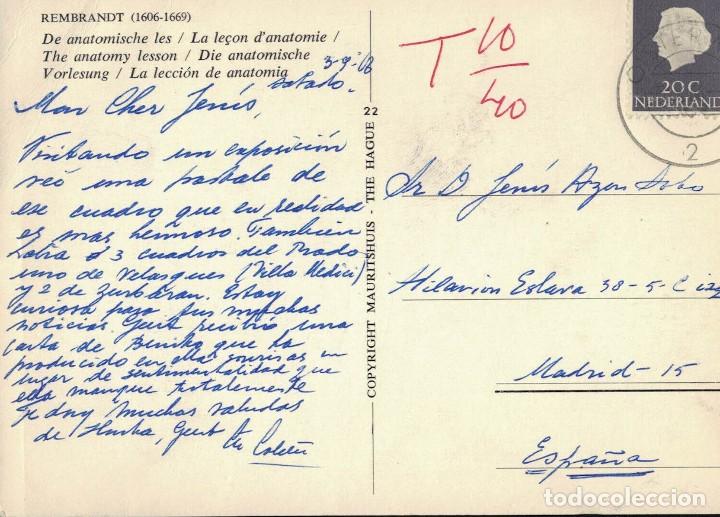 REMBRANDT (1606-1669)
De anatomische les / La leçon d'anatomie /
The anatomy lesson / Die anatomische
Vorlesung / La lección de anatomia
sabado.
Mon Cher Jesús,
Visitando un exposición
veó una postale de
ese cuadro que en realidad
es mas hermoso. También
3 cuadros del Prado
uno de Velasques (Villa Medici)
y 2 de Zurbáran. Estoy
curiosa para tus muchas
noticias. Gert recibió una
carta de que
producido en ella sonrisas en
lugar de sentimentalidad que
ella manque totalemente
Te doy muchos saludos
de Gert
22
COPYRIGHT MAURITSHUIS - THE HAGUE
T 10
40
20C
NEDERLAND
2
Sr D. Jesús
Hilarion Eslava 38-5-C
Madrid-15
España
todocoleccion.net